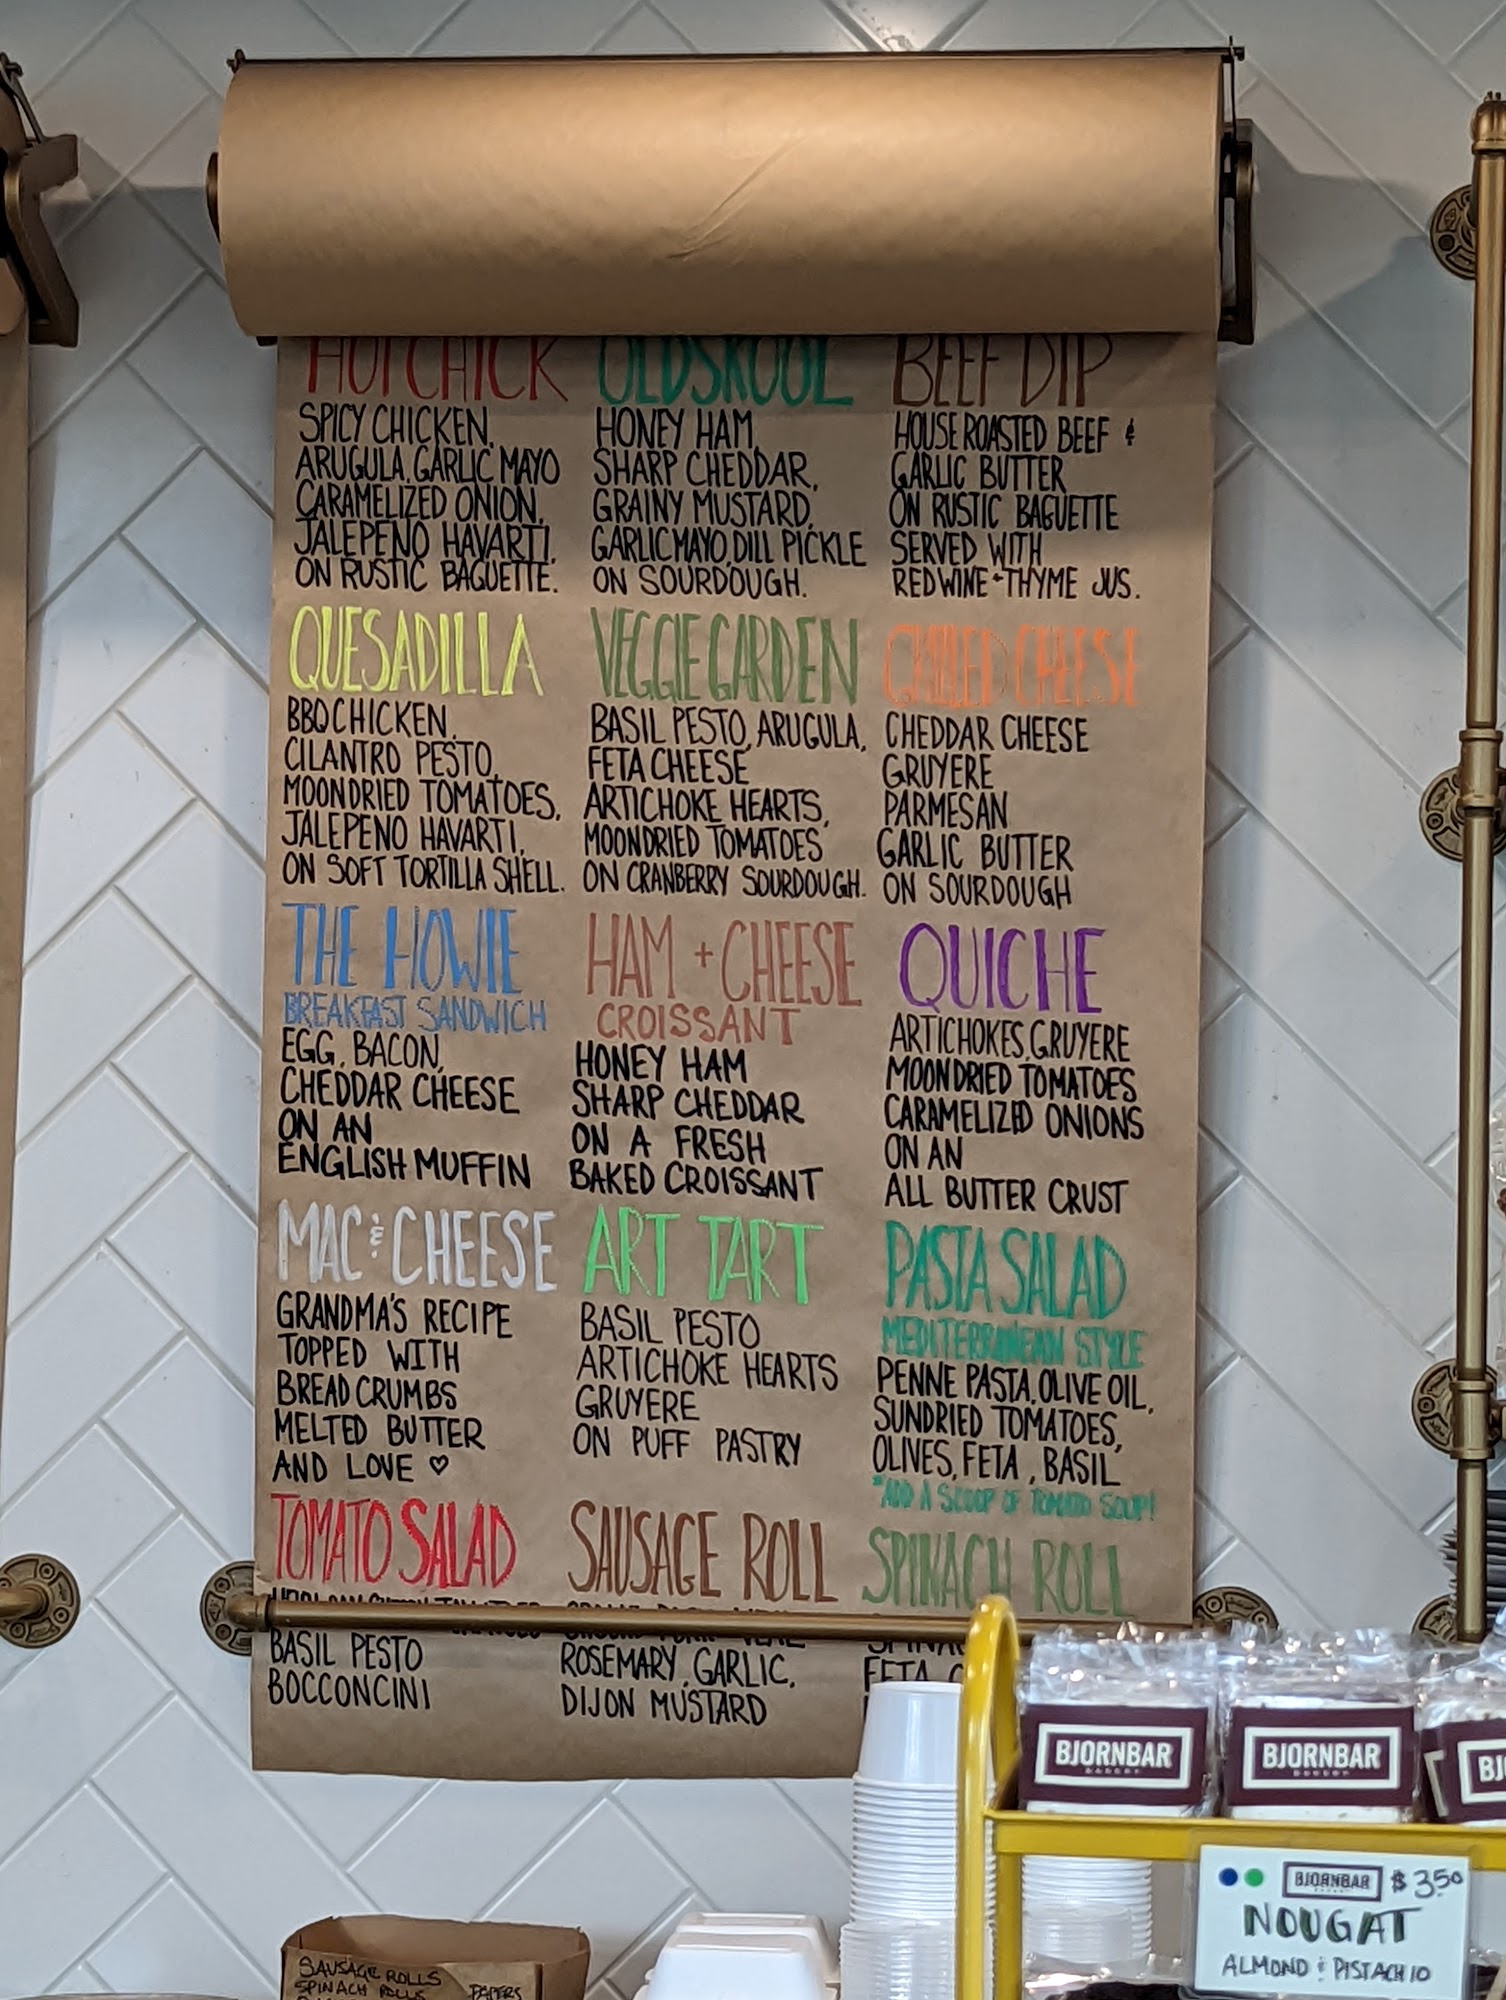 HOT CHICK
SPICY CHICKEN,
ARUGULA, GARLIC MAYO
CARAMELIZED ONION,
JALEPENO HAVARTI,
ON RUSTIC BAGUETTE.
OLDSKOOL
HONEY HAM,
SHARP CHEDDAR,
GRAINY MUSTARD,
GARLIC MAYO, DILL PICKLE
ON SOURDOUGH.
BEEF DIP
HOUSE ROASTED BEEF &
GARLIC BUTTER
ON RUSTIC BAGUETTE
SERVED WITH
RED WINE + THYME JUS.
QUESADILLA
BBQ CHICKEN,
CILANTRO PESTO,
MOONDRIED TOMATOES,
JALEPENO HAVARTI,
ON SOFT TORTILLA SHELL.
VEGGIE GARDEN
BASIL PESTO, ARUGULA,
FETA CHEESE
ARTICHOKE HEARTS,
MOONDRIED TOMATOES
ON CRANBERRY SOURDOUGH.
GRILLED CHEESE
CHEDDAR CHEESE
GRUYERE
PARMESAN
GARLIC BUTTER
ON SOURDOUGH
THE HOWIE
BREAKFAST SANDWICH
EGG, BACON,
CHEDDAR CHEESE
ON AN
ENGLISH MUFFIN
HAM + CHEESE
CROISSANT
HONEY HAM
SHARP CHEDDAR
ON A FRESH
BAKED CROISSANT
QUICHE
ARTICHOKES, GRUYERE
MOONDRIED TOMATOES
CARAMELIZED ONIONS
ON AN
ALL BUTTER CRUST
MAC & CHEESE
GRANDMA'S RECIPE
TOPPED WITH
BREAD CRUMBS
MELTED BUTTER
AND LOVE ♡
ART TART
BASIL PESTO
ARTICHOKE HEARTS
GRUYERE
ON PUFF PASTRY
PASTA SALAD
MEDITERRANEAN STYLE
PENNE PASTA, OLIVE OIL,
SUNDRIED TOMATOES,
OLIVES, FETA, BASIL
*AND A SCOOP OF TOMATO SOUP!
TOMATO SALAD
BASIL PESTO
BOCCONCINI
SAUSAGE ROLL
ROSEMARY, GARLIC,
DIJON MUSTARD
SPINACH ROLL
FETA
BJORNBAR
BAKERY
BJORNBAR
BAKERY
BJ
BJORNBAR $3.50
NOUGAT
ALMOND & PISTACHIO
SAUSAGE ROLLS
SPINACH ROLLS
PAPERS